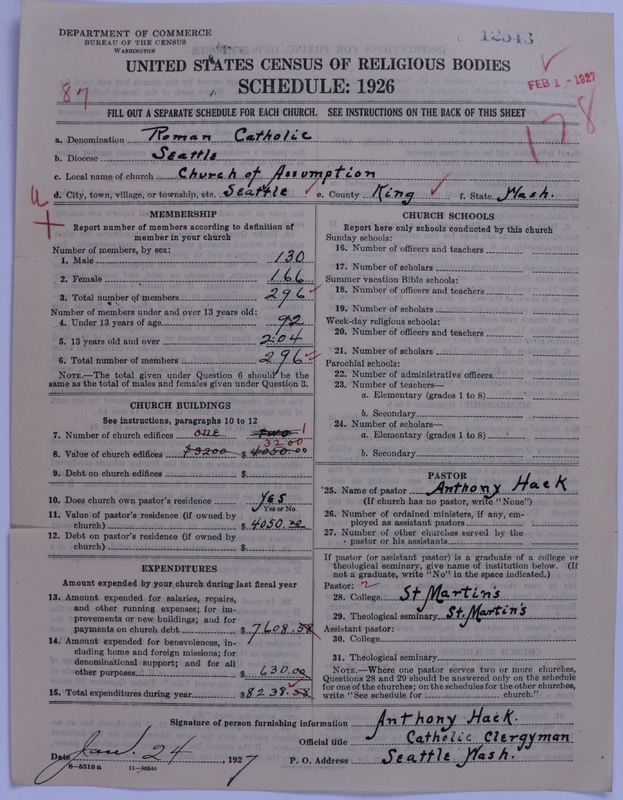 DEPARTMENT OF COMMERCE
BUREAU OF THE CENSUS
WASHINGTON
12343
UNITED STATES CENSUS OF RELIGIOUS BODIES
SCHEDULE: 1926
FEB 1 - 1927
87
178
FILL OUT A SEPARATE SCHEDULE FOR EACH CHURCH. SEE INSTRUCTIONS ON THE BACK OF THIS SHEET
a. Denomination Roman Catholic
b. Diocese Seattle
c. Local name of church Church of Assumption
d. City, town, village, or township, etc. Seattle e. County King f. State Wash.
MEMBERSHIP
Report number of members according to definition of
member in your church
Number of members, by sex:
1. Male 130
2. Female 166
3. Total number of members 296
Number of members under and over 13 years old:
4. Under 13 years of age 92
5. 13 years old and over 204
6. Total number of members 296
NOTE.—The total given under Question 6 should be the
same as the total of males and females given under Question 3.
CHURCH BUILDINGS
See instructions, paragraphs 10 to 12
7. Number of church edifices one two 1
3200
8. Value of church edifices $3200 $ 4050.00
9. Debt on church edifices $
10. Does church own pastor's residence Yes
Yes or No
11. Value of pastor's residence (if owned by
church) $ 4050.00
12. Debt on pastor's residence (if owned by
church) $
EXPENDITURES
Amount expended by your church during last fiscal year
13. Amount expended for salaries, repairs,
and other running expenses; for im-
provements or new buildings; and for
payments on church debt $ 7608.38
14. Amount expended for benevolences, in-
cluding home and foreign missions; for
denominational support; and for all
other purposes $ 630.00
15. Total expenditures during year $ 8238.38
CHURCH SCHOOLS
Report here only schools conducted by this church
Sunday schools:
16. Number of officers and teachers
17. Number of scholars
Summer vacation Bible schools:
18. Number of officers and teachers
19. Number of scholars
Week-day religious schools:
20. Number of officers and teachers
21. Number of scholars
Parochial schools:
22. Number of administrative officers
23. Number of teachers—
a. Elementary (grades 1 to 8)
b. Secondary
24. Number of scholars—
a. Elementary (grades 1 to 8)
b. Secondary
PASTOR
25. Name of pastor Anthony Hack
(If church has no pastor, write "None")
26. Number of ordained ministers, if any, em-
ployed as assistant pastors
27. Number of other churches served by the
pastor or his assistants
If pastor (or assistant pastor) is a graduate of a college or
theological seminary, give name of institution below. (If
not a graduate, write "No" in the space indicated.)
Pastor: 2
28. College St Martin's
29. Theological seminary St. Martin's
Assistant pastor:
30. College
31. Theological seminary
NOTE.—Where one pastor serves two or more churches,
Questions 28 and 29 should be answered only on the schedule
for one of the churches; on the schedules for the other churches,
write "See schedule for church."
Signature of person furnishing information Anthony Hack.
Official title Catholic Clergyman
Date Jan. 24, 1927 P. O. Address Seattle Wash.
8-5518a